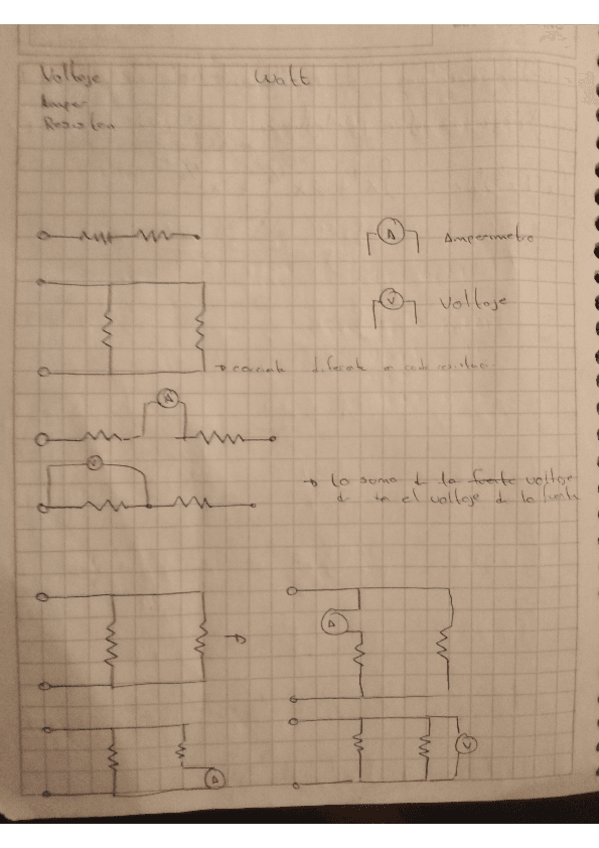 Voltaje
Watt
Amper
Resisten
A
Amperimetro
V
Voltaje
→ corriente diferente en cada
A
V
→ la suma d la fuente voltaje
d en el voltaje d la fuente
A
A
V